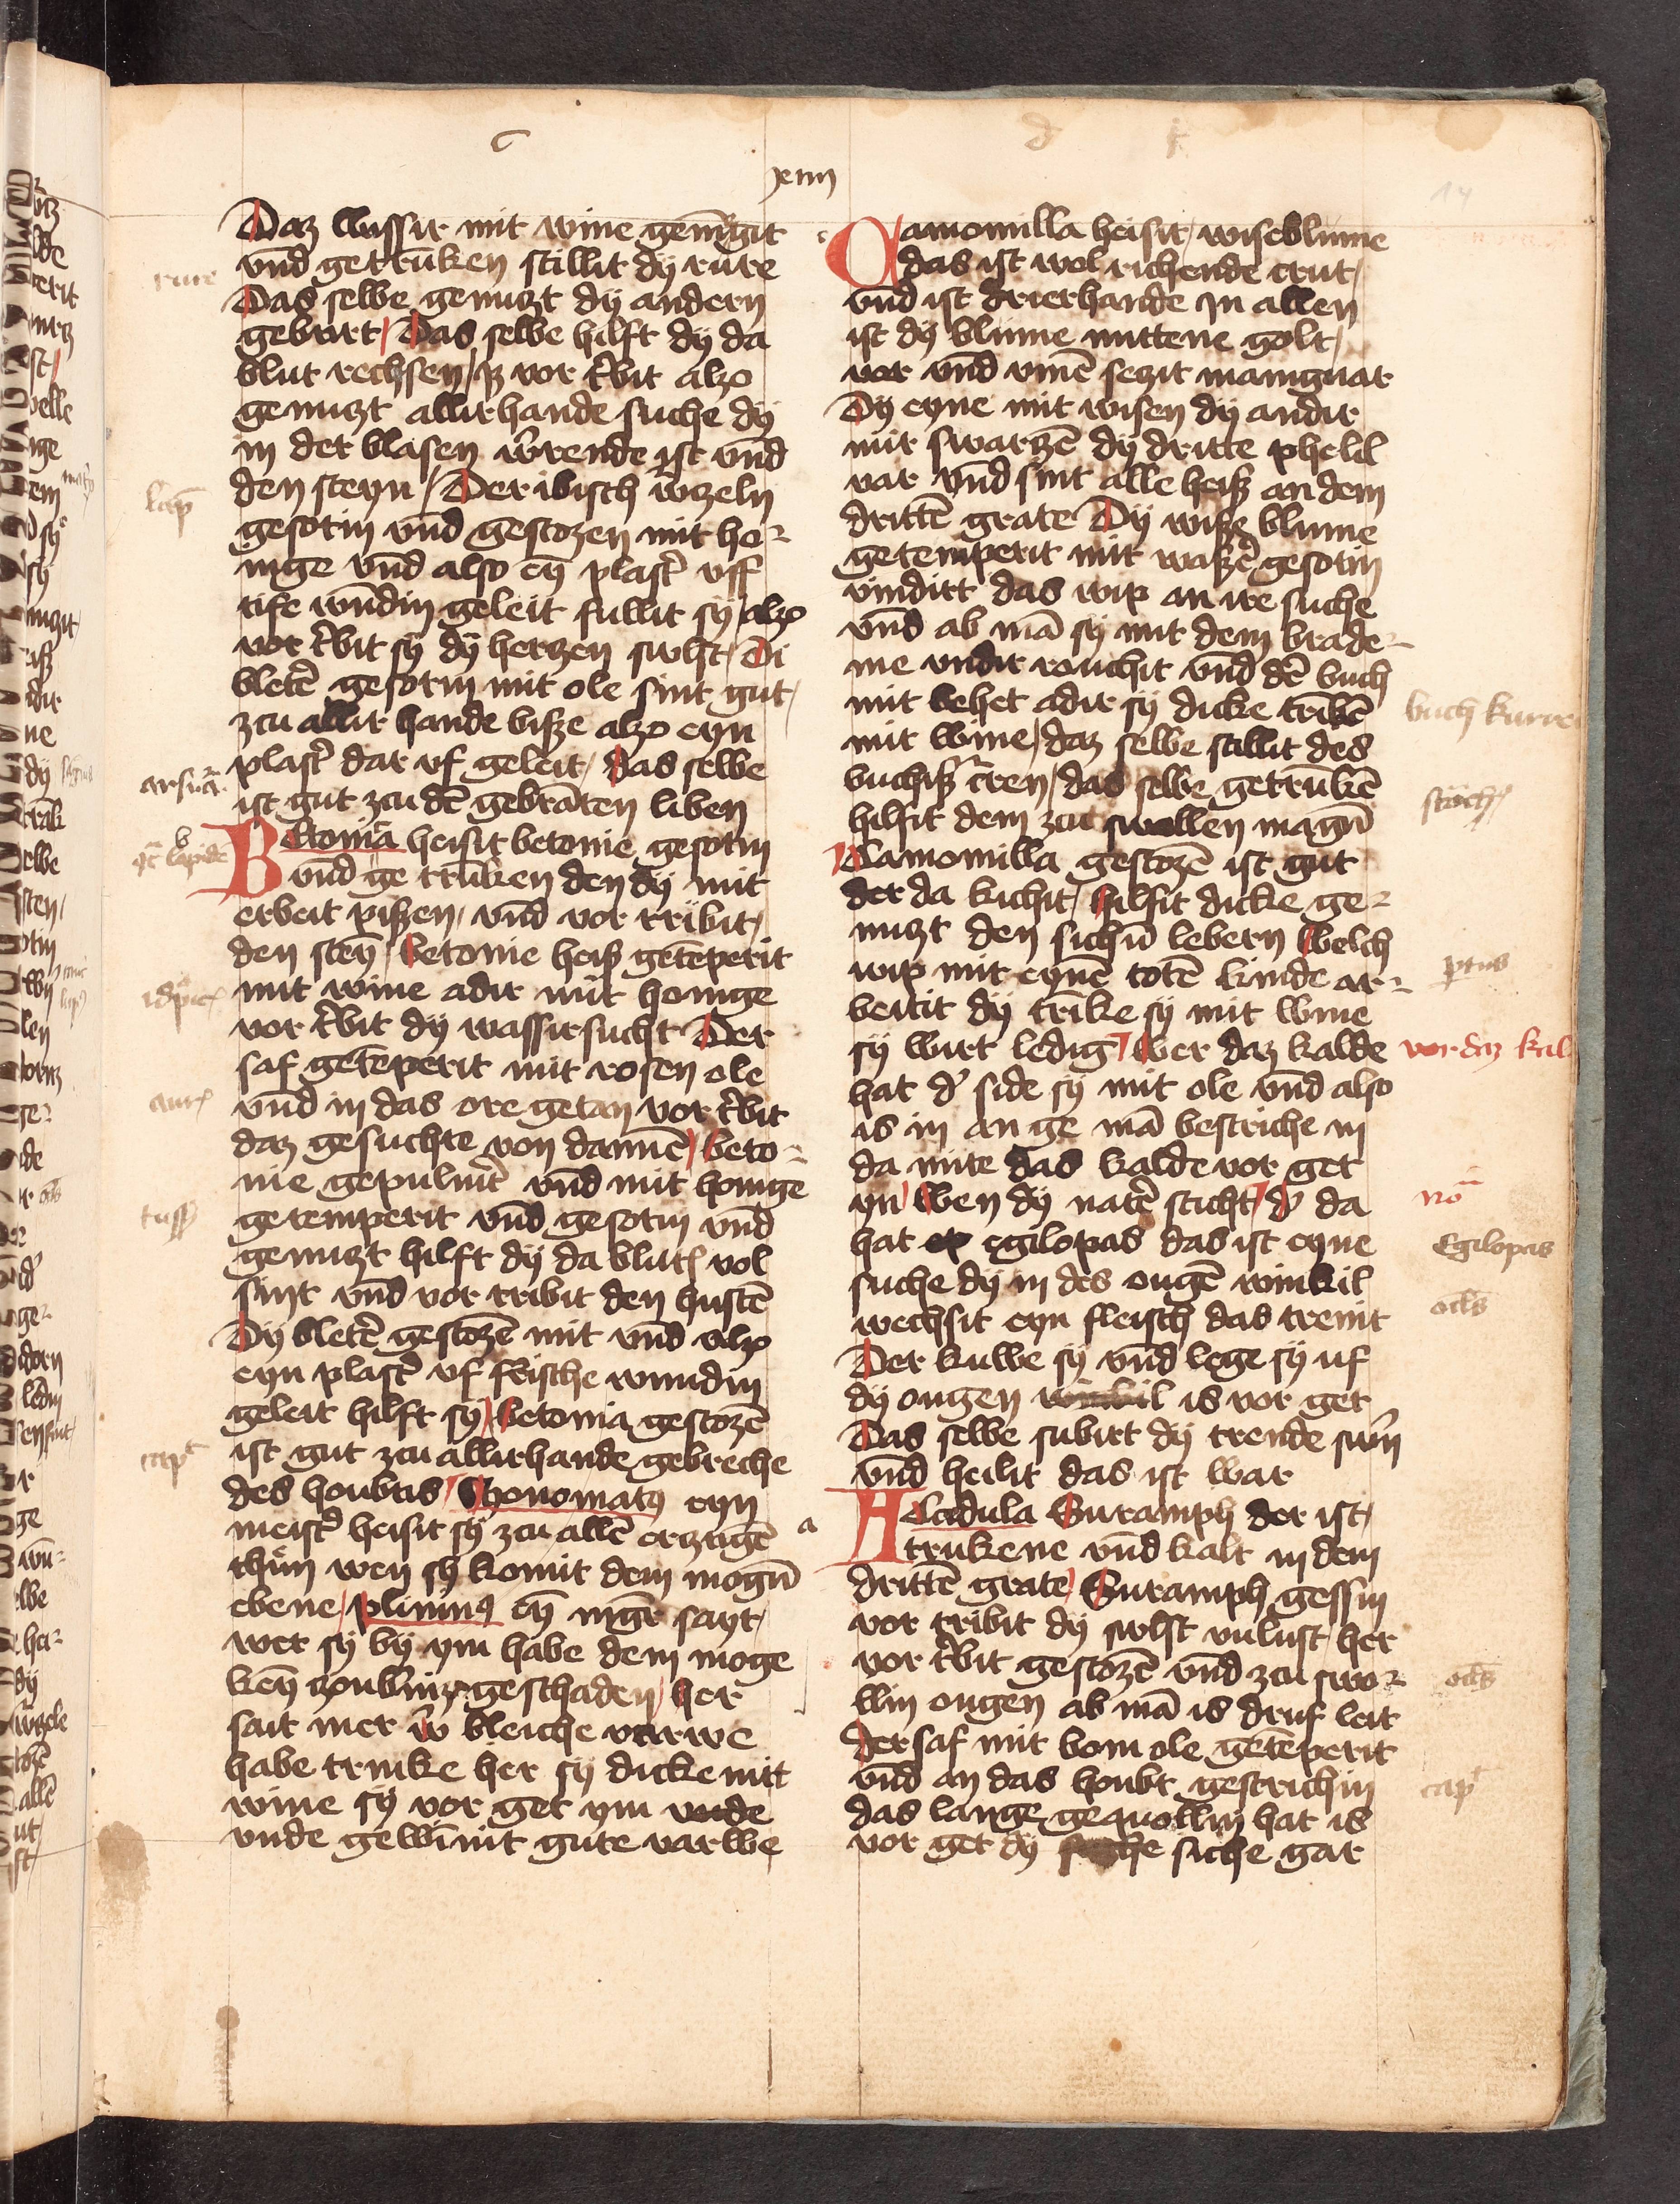 xiiij
14
Daz wassir mit wine gemēgit
vnd getruken stillit dy rure
Das selbe genuczt dy andern
geburt Das selbe hilft dy da
blut rechsen vor t'bit alzo
genuczt allirhande suche dy
in der blasen w'rende ist vnd
den steyn Der ibisch w'rzeln
gesotin vnd gestozen mit ho-
nige vnd also ey plast' vff
tife wundin geleit fullit sy alzo
vor t'bit sy dy herzen swlst Di
bletē gesotin mit ole sint gut
zcu allir hande bisze alzo eyn
plast' dar vf geleit das selbe
ist gut zcu dē gebrāten liben
Betonia heisit betonie gesotin
vnd ge trūken den dy mit
erbeit piszen vnd vor tribit
den steȳ betonie heiß getēperit
mit wine adir mit honige
vor t'bit dy wassirsucht Der
saf getēperit mit rosen ole
vnd in das ore getan vor t'bit
daz gesuchte von dannē beto-
nie gepuluert vnd mit honige
getemperit vnd gesotin vnd
genuczt hilft dy da blut vol
sint vnd vor tribit den hustē
Dy bletē gestozē mit vnd alzo
eyn plast' vf frische wundin
geleit hilft sy betonia gestozē
ist gut zcu allirhande gebreche
des houbtis eyn
meist' heisit sy zcu allē erzugē
thun wen sy komit dem mogū
ebene plinius eȳ mgr sayt
wer sy by ym habe dem moge
keȳ zoubniz geschaden her
sait mer w' bleiche varwe
habe trinke her sy dicke mit
wine sy vor get ym vnde
vnde gewinnit gute varwe
Camomilla heisit wiseblume
das ist wol richende crut
vnd ist drierhande In allen
ist dy blume mittene golt
var vnd vmē seczit manignar
Dy eyne mit wisen dy andir
mit swarzē dy dritte phelil
var vnd sint alle heiß an dem
drittē grate Dy wisze blume
getemperit mit waszē gesotin
vindirt das wip an ire suche
vnd ab mā sy mit dem brade-
me vndir rouchit vnd dē buch
mit behet adir sy dicke trībē
mit wine daz selbe stillit des
buchiß c'ren das selbe getrūkē
hilfit dem zcu swollen magū
Camomilla gestozē ist gut
der da kichit hilfit dicke ge-
nuczt den sichū lebern welch
wip mit eynē totē kinde ar-
beitit dy trīke sy mit wine
sy wirt ledig wer daz kalde
hat d' side sy mit ole vnd also
is in an ge mā bestriche in
da mite das kalde vor get
yn wen dy natē sticht d' da
hat egilopas das ist eyne
suche dy in des ougē winkil
wechsit eyn fleisch das trenit
Der kuwe sy vnd lege sy uf
dy ougen is vor get
Das selbe subirt dy trende
vnd heilit das ist war
Acedula Suramph der ist
trukene vnd kalt in dem
drittē grate Suramph gessin
vor tribit dy swlst vnlust her
vor t'bit gestozē vnd zcu swo-
llin ougen ab mā is druf leit
der saf mit bom ole getēperit
vnd an das houbt gestrichin
das lange gequollin hat is
vor get dy suche gar
rure
lap
arsura
tuss
cap
buch kurren
stoch
ptus
vor daz kal
no
Egilopas
ocls
ocls
cap